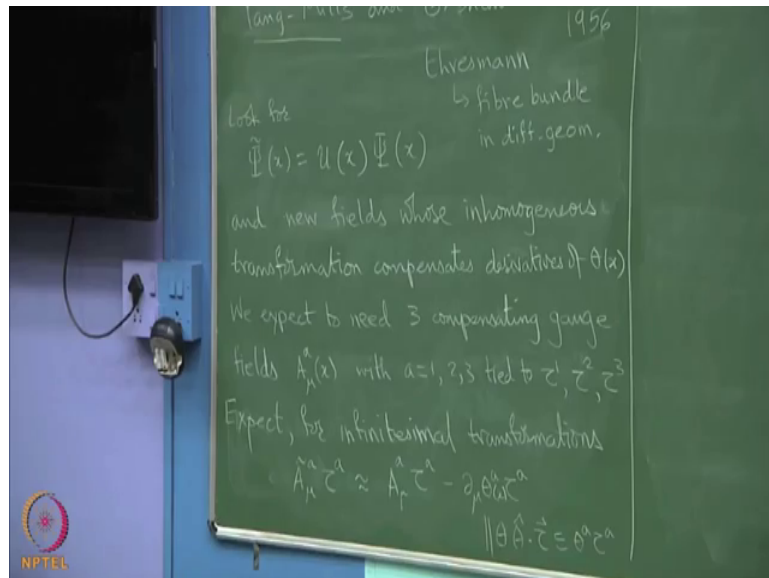 Yang-Mills and
1956
Ehresmann
↳ fibre bundle
in diff. geom.
Look for
Ψ̃(x) = U(x) Ψ(x)
and new fields whose inhomogeneous
transformation compensates derivatives of θ(x)
We expect to need 3 compensating gauge
fields A^a_μ(x) with a=1,2,3 tied to τ^1, τ^2, τ^3
Expect, for infinitesimal transformations
Ã^a_μ τ^a ≈ A^a_μ τ^a - ∂_μ θ^a(x) τ^a
|| θ θ̂·τ⃗ ≡ θ^a τ^a
NPTEL